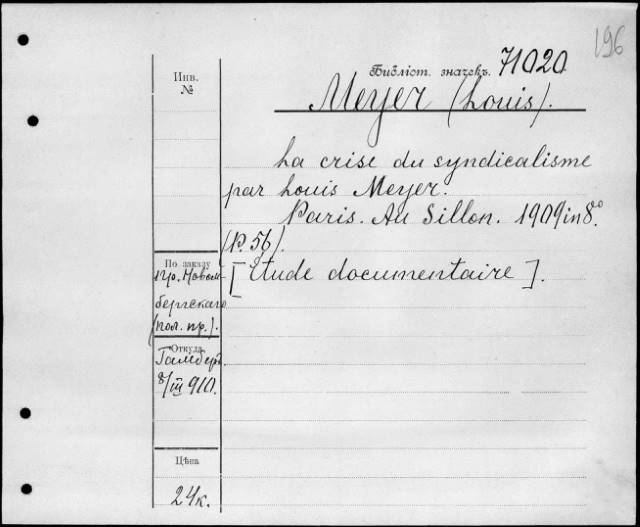 196
Библіот. значекъ. 71020
Инв.
№
Meyer (Louis).
La crise du syndicalisme
par Louis Meyer.
Paris. Au Sillon. 1909 in 8º.
(P. 56).
[Etude documentaire].
По заказу
пр. Новом-
бергскаго
(пол. пр.).
Откуда
Гамберъ.
8/III 910.
Цѣна
24к.